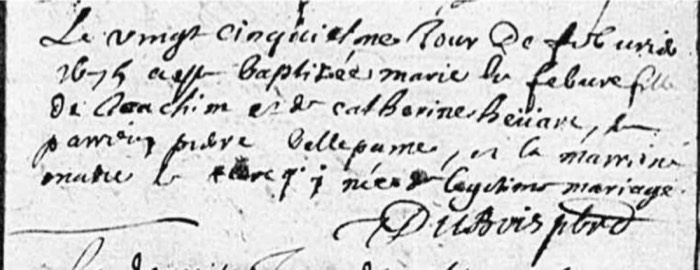 Le vingt cinquiesme Jour de feburie
1675 a este baptisée marie le febure fille
de Joachim et de catherine heuiare, le
parrein pierre bellepaume, et la marrine
marie le née de legitime mariage
DuBois pbre